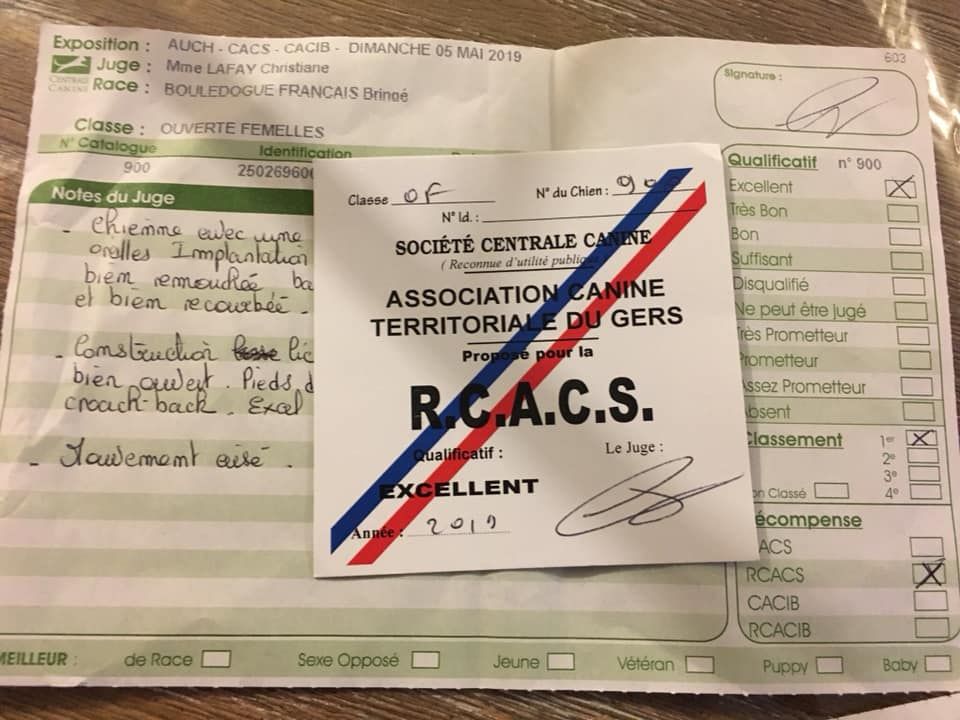 Exposition : AUCH - CACS - CACIB - DIMANCHE 05 MAI 2019
603
Juge : Mme LAFAY Christiane
CENTRALE CANINE
Race : BOULEDOGUE FRANCAIS Bringé
Signature :
Classe : OUVERTE FEMELLES
N° Catalogue Identification
900 25026960
Notes du Juge
- Chienne avec une
oreilles Implantation
bien remouchée ba
et bien recourbée.
- Construction
bien ouvert. Pieds d
croach-back. Excel
- Mouvement aisé.
Classe OF N° du Chien : 900
N° Id. :
SOCIÉTÉ CENTRALE CANINE
( Reconnue d'utilité publique )
ASSOCIATION CANINE
TERRITORIALE DU GERS
Propose pour la
R.C.A.C.S.
Qualificatif : Le Juge :
EXCELLENT
Année : 2019
Qualificatif n° 900
Excellent X
Très Bon
Bon
Suffisant
Disqualifié
Ne peut être jugé
Très Prometteur
Prometteur
Assez Prometteur
Absent
Classement 1er X
2e
3e
on Classé 4e
écompense
ACS
RCACS X
CACIB
RCACIB
MEILLEUR : de Race Sexe Opposé Jeune Vétéran Puppy Baby